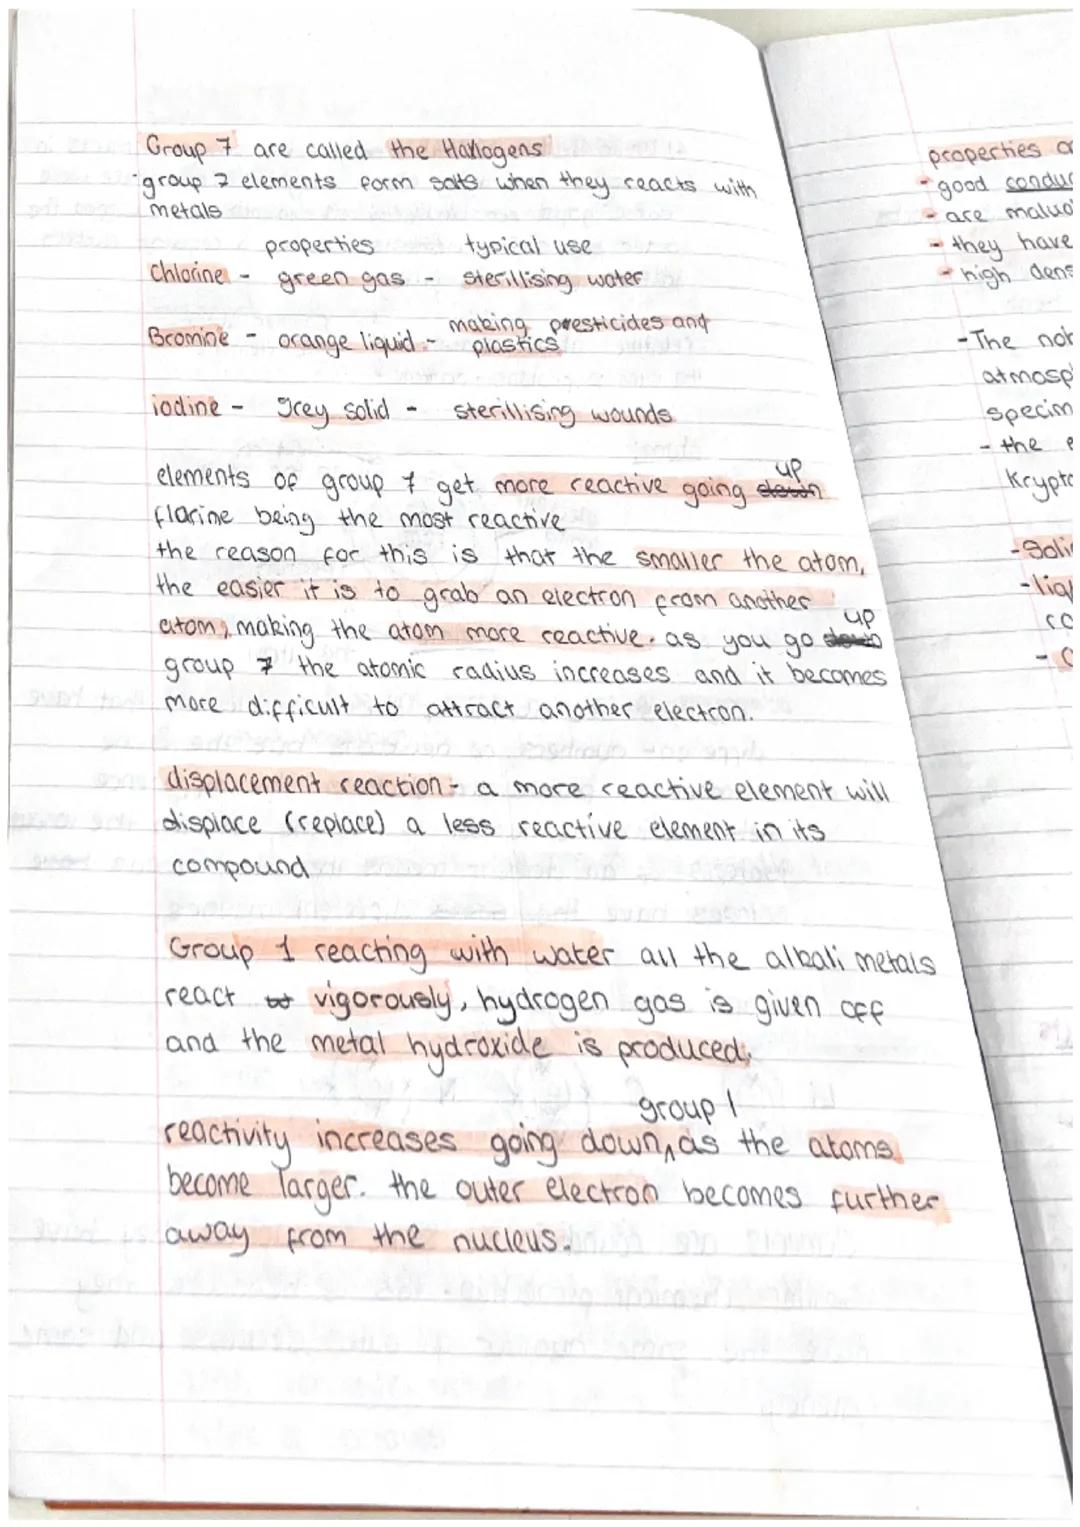 Group 7 are called the Hallogens
-group 7 elements form salts when they reacts with
metals
properties typical use
Chlorine - green gas - sterillising water
Bromine - orange liquid - making presticides and
plastics
iodine - grey solid - sterillising wounds
elements of group 7 get more reactive going down up
florine being the most reactive
the reason for this is that the smaller the atom,
the easier it is to grab an electron from another
atom, making the atom more reactive. as you go down up
group 7 the atomic radius increases and it becomes
more difficult to attract another electron.
displacement reaction:- a more reactive element will
displace (replace) a less reactive element in its
compound
Group 1 reacting with water all the albali metals
react vigorously, hydrogen gas is given off
and the metal hydroxide is produced.
group 1
reactivity increases going down, as the atoms
become larger. the outer electron becomes further
away from the nucleus.
properties
- good
- are
- they have
- high
- The
- the